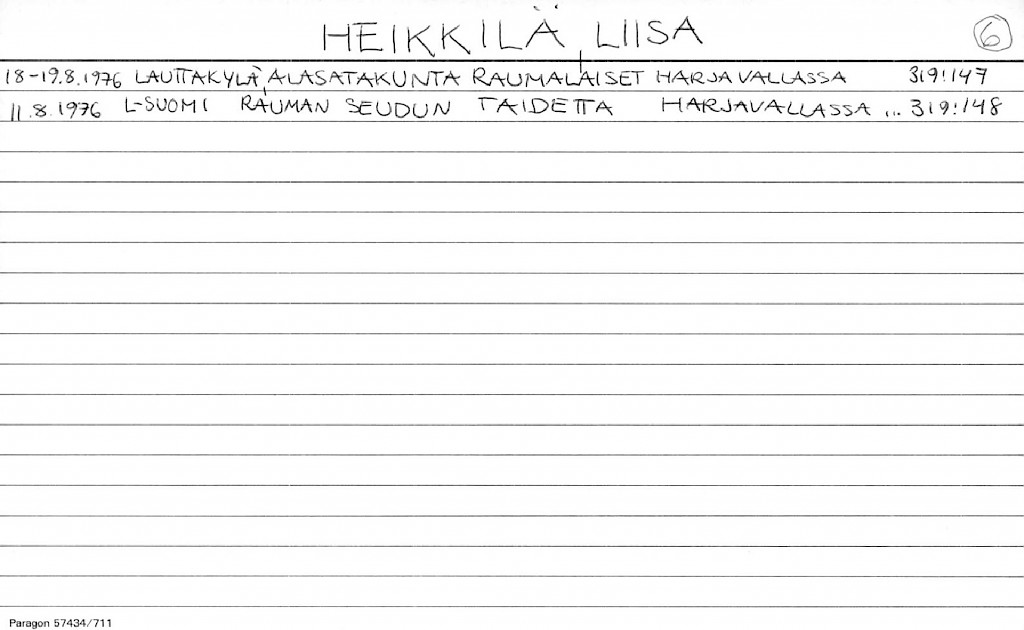 HEIKKILÄ, LIISA 6
18-19.8.1976 LAUTTAKYLÄ, ALASATAKUNTA RAUMALAISET HARJAVALLASSA 319:147
11.8.1976 L-SUOMI RAUMAN SEUDUN TAIDETTA HARJAVALLASSA ... 319:148
Paragon 57434/711